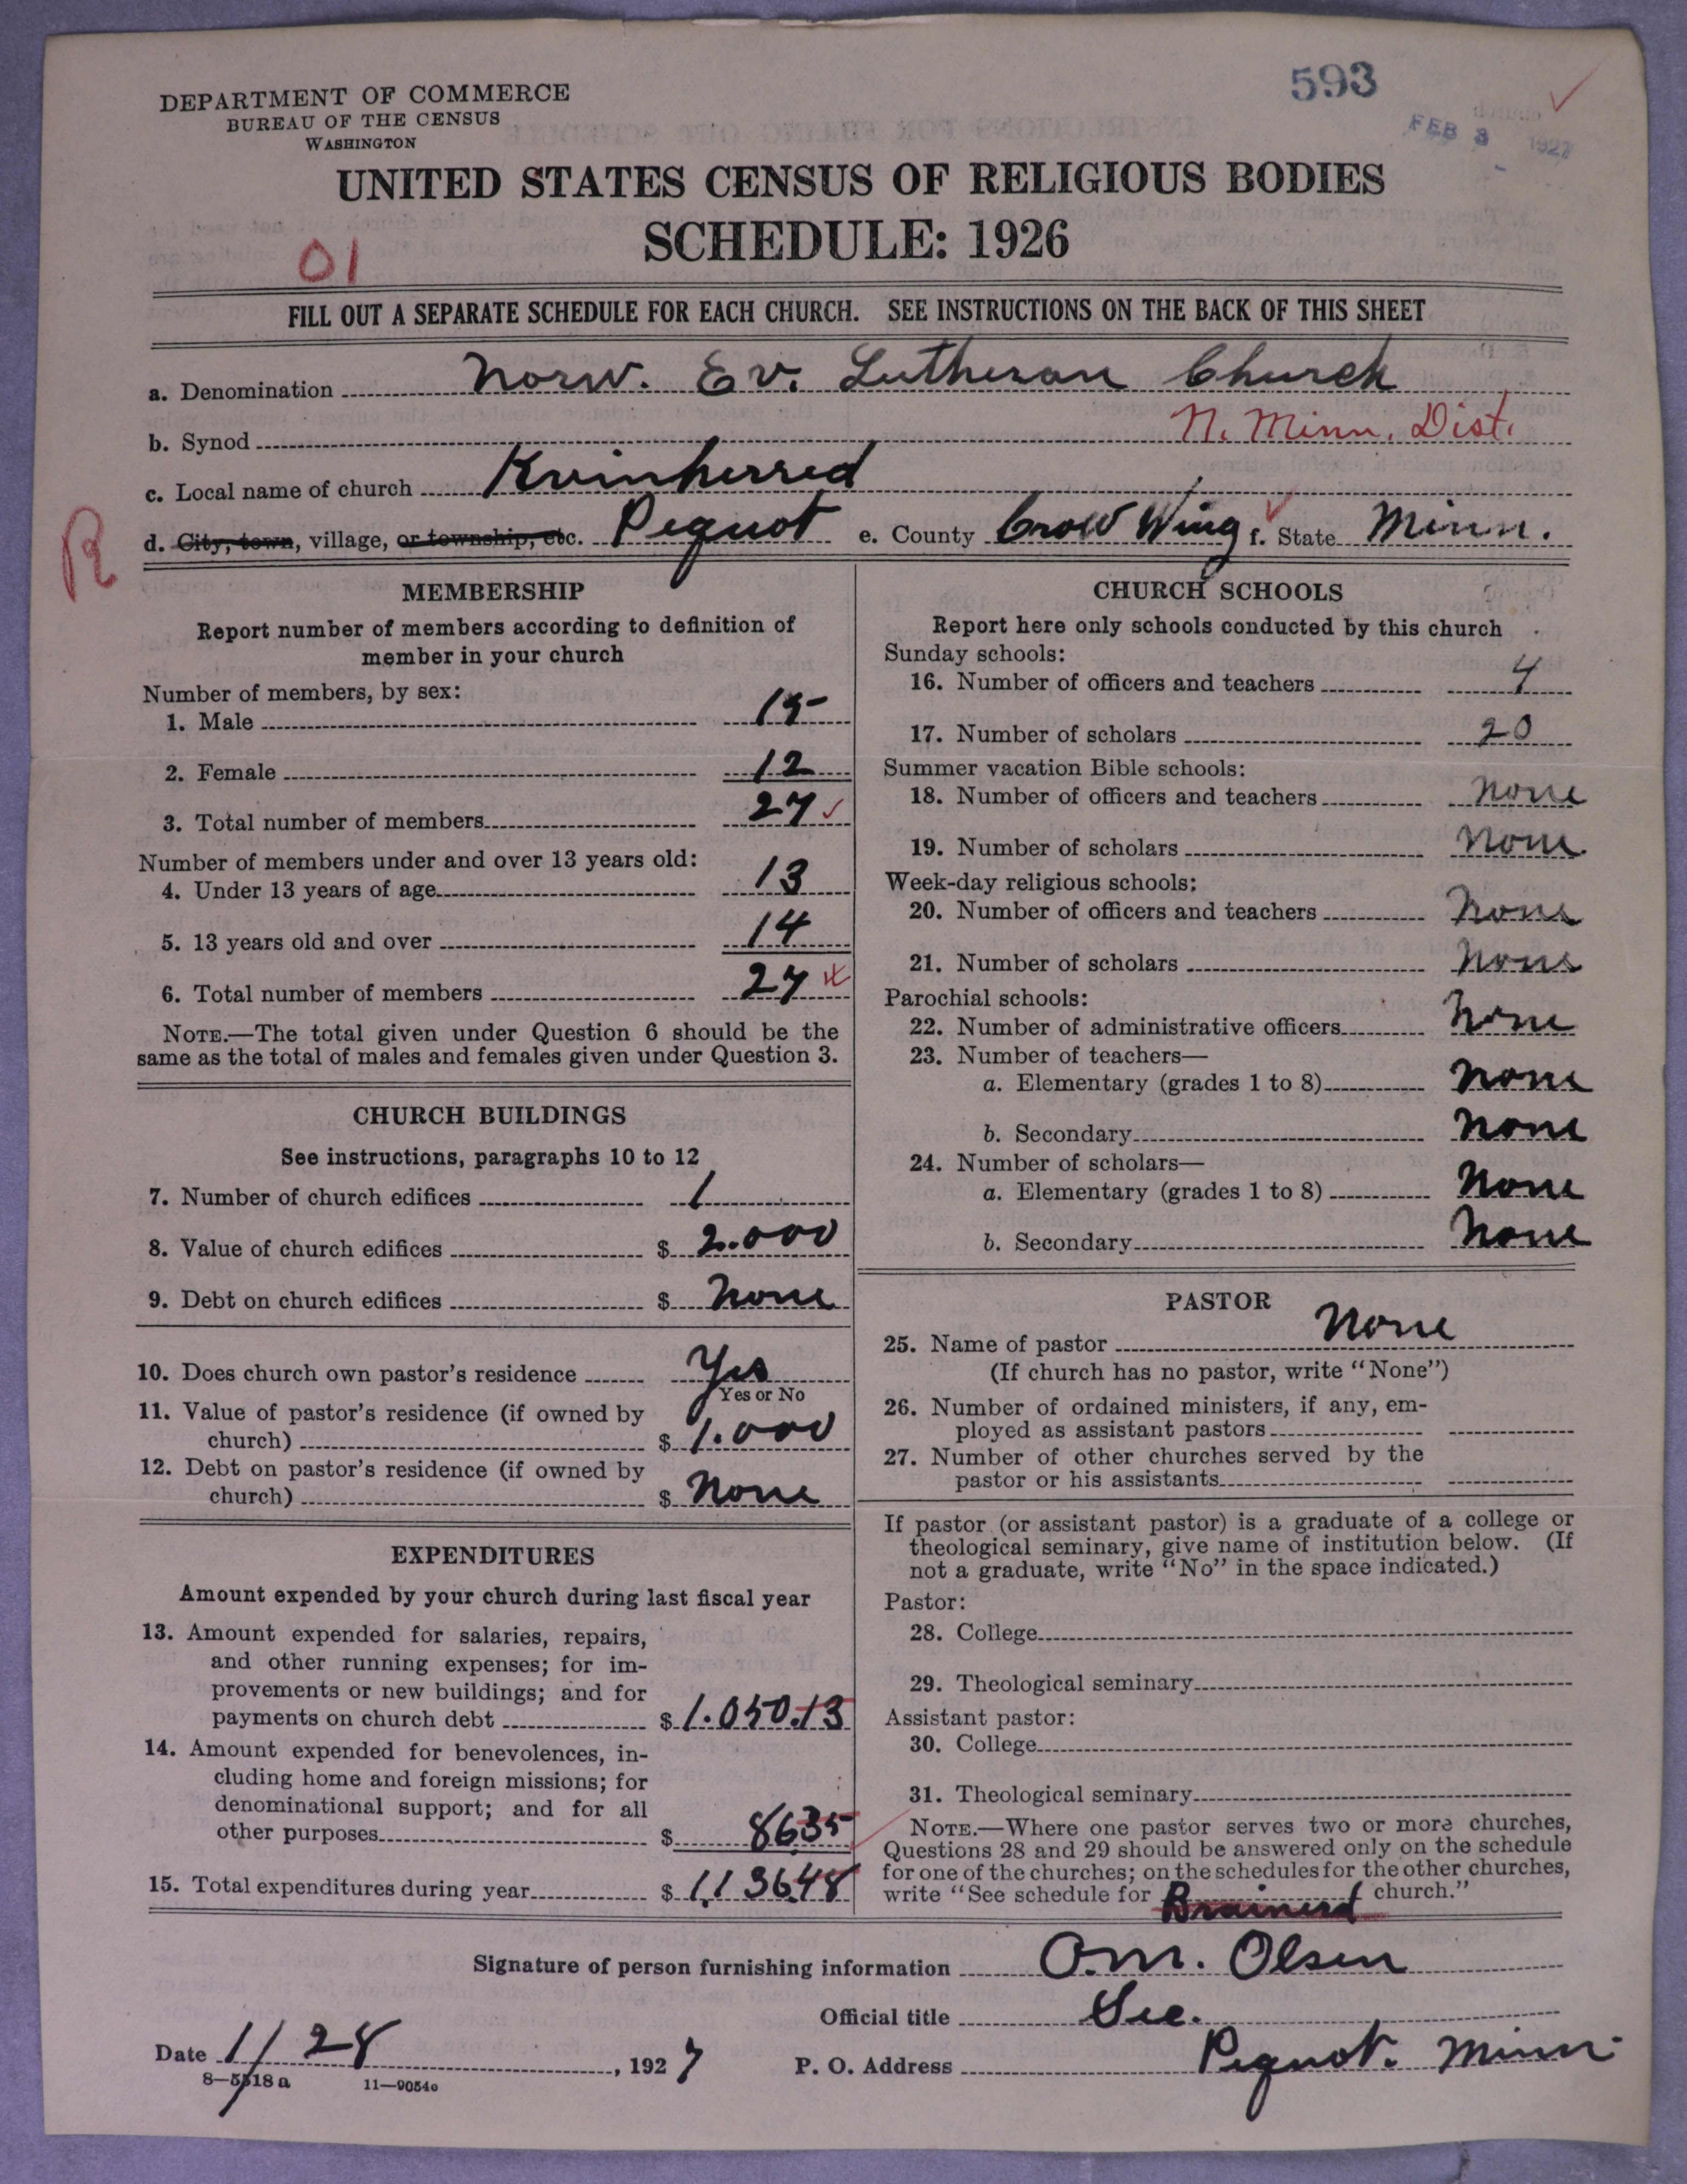 593
DEPARTMENT OF COMMERCE
BUREAU OF THE CENSUS
WASHINGTON
FEB 3 1927
UNITED STATES CENSUS OF RELIGIOUS BODIES
SCHEDULE: 1926
01
FILL OUT A SEPARATE SCHEDULE FOR EACH CHURCH. SEE INSTRUCTIONS ON THE BACK OF THIS SHEET
a. Denomination Norw. Ev. Lutheran Church
b. Synod N. Minn. Dist.
c. Local name of church Kvinherred
R
d. City, town, village, or township, etc. Pequot e. County Crow Wing f. State Minn.
MEMBERSHIP
Report number of members according to definition of
member in your church
Number of members, by sex:
1. Male 15
2. Female 12
3. Total number of members 27
Number of members under and over 13 years old:
4. Under 13 years of age 13
5. 13 years old and over 14
6. Total number of members 27
NOTE.—The total given under Question 6 should be the
same as the total of males and females given under Question 3.
CHURCH BUILDINGS
See instructions, paragraphs 10 to 12
7. Number of church edifices 1
8. Value of church edifices $ 2.000
9. Debt on church edifices $ None
10. Does church own pastor's residence Yes
Yes or No
11. Value of pastor's residence (if owned by
church) $ 1.000
12. Debt on pastor's residence (if owned by
church) $ None
EXPENDITURES
Amount expended by your church during last fiscal year
13. Amount expended for salaries, repairs,
and other running expenses; for im-
provements or new buildings; and for
payments on church debt $ 1.050.13
14. Amount expended for benevolences, in-
cluding home and foreign missions; for
denominational support; and for all
other purposes $ 8635
15. Total expenditures during year $ 1,136.48
CHURCH SCHOOLS
Report here only schools conducted by this church
Sunday schools:
16. Number of officers and teachers 4
17. Number of scholars 20
Summer vacation Bible schools:
18. Number of officers and teachers None
19. Number of scholars None
Week-day religious schools:
20. Number of officers and teachers None
21. Number of scholars None
Parochial schools:
22. Number of administrative officers None
23. Number of teachers—
a. Elementary (grades 1 to 8) None
b. Secondary None
24. Number of scholars—
a. Elementary (grades 1 to 8) None
b. Secondary None
PASTOR
25. Name of pastor None
(If church has no pastor, write "None")
26. Number of ordained ministers, if any, em-
ployed as assistant pastors
27. Number of other churches served by the
pastor or his assistants
If pastor (or assistant pastor) is a graduate of a college or
theological seminary, give name of institution below. (If
not a graduate, write "No" in the space indicated.)
Pastor:
28. College
29. Theological seminary
Assistant pastor:
30. College
31. Theological seminary
NOTE.—Where one pastor serves two or more churches,
Questions 28 and 29 should be answered only on the schedule
for one of the churches; on the schedules for the other churches,
write "See schedule for Brainerd church."
Signature of person furnishing information O.M. Olsen
Official title Sec.
Date 1/28, 1927 P. O. Address Pequot. Minn.
8—5518a 11—9054o